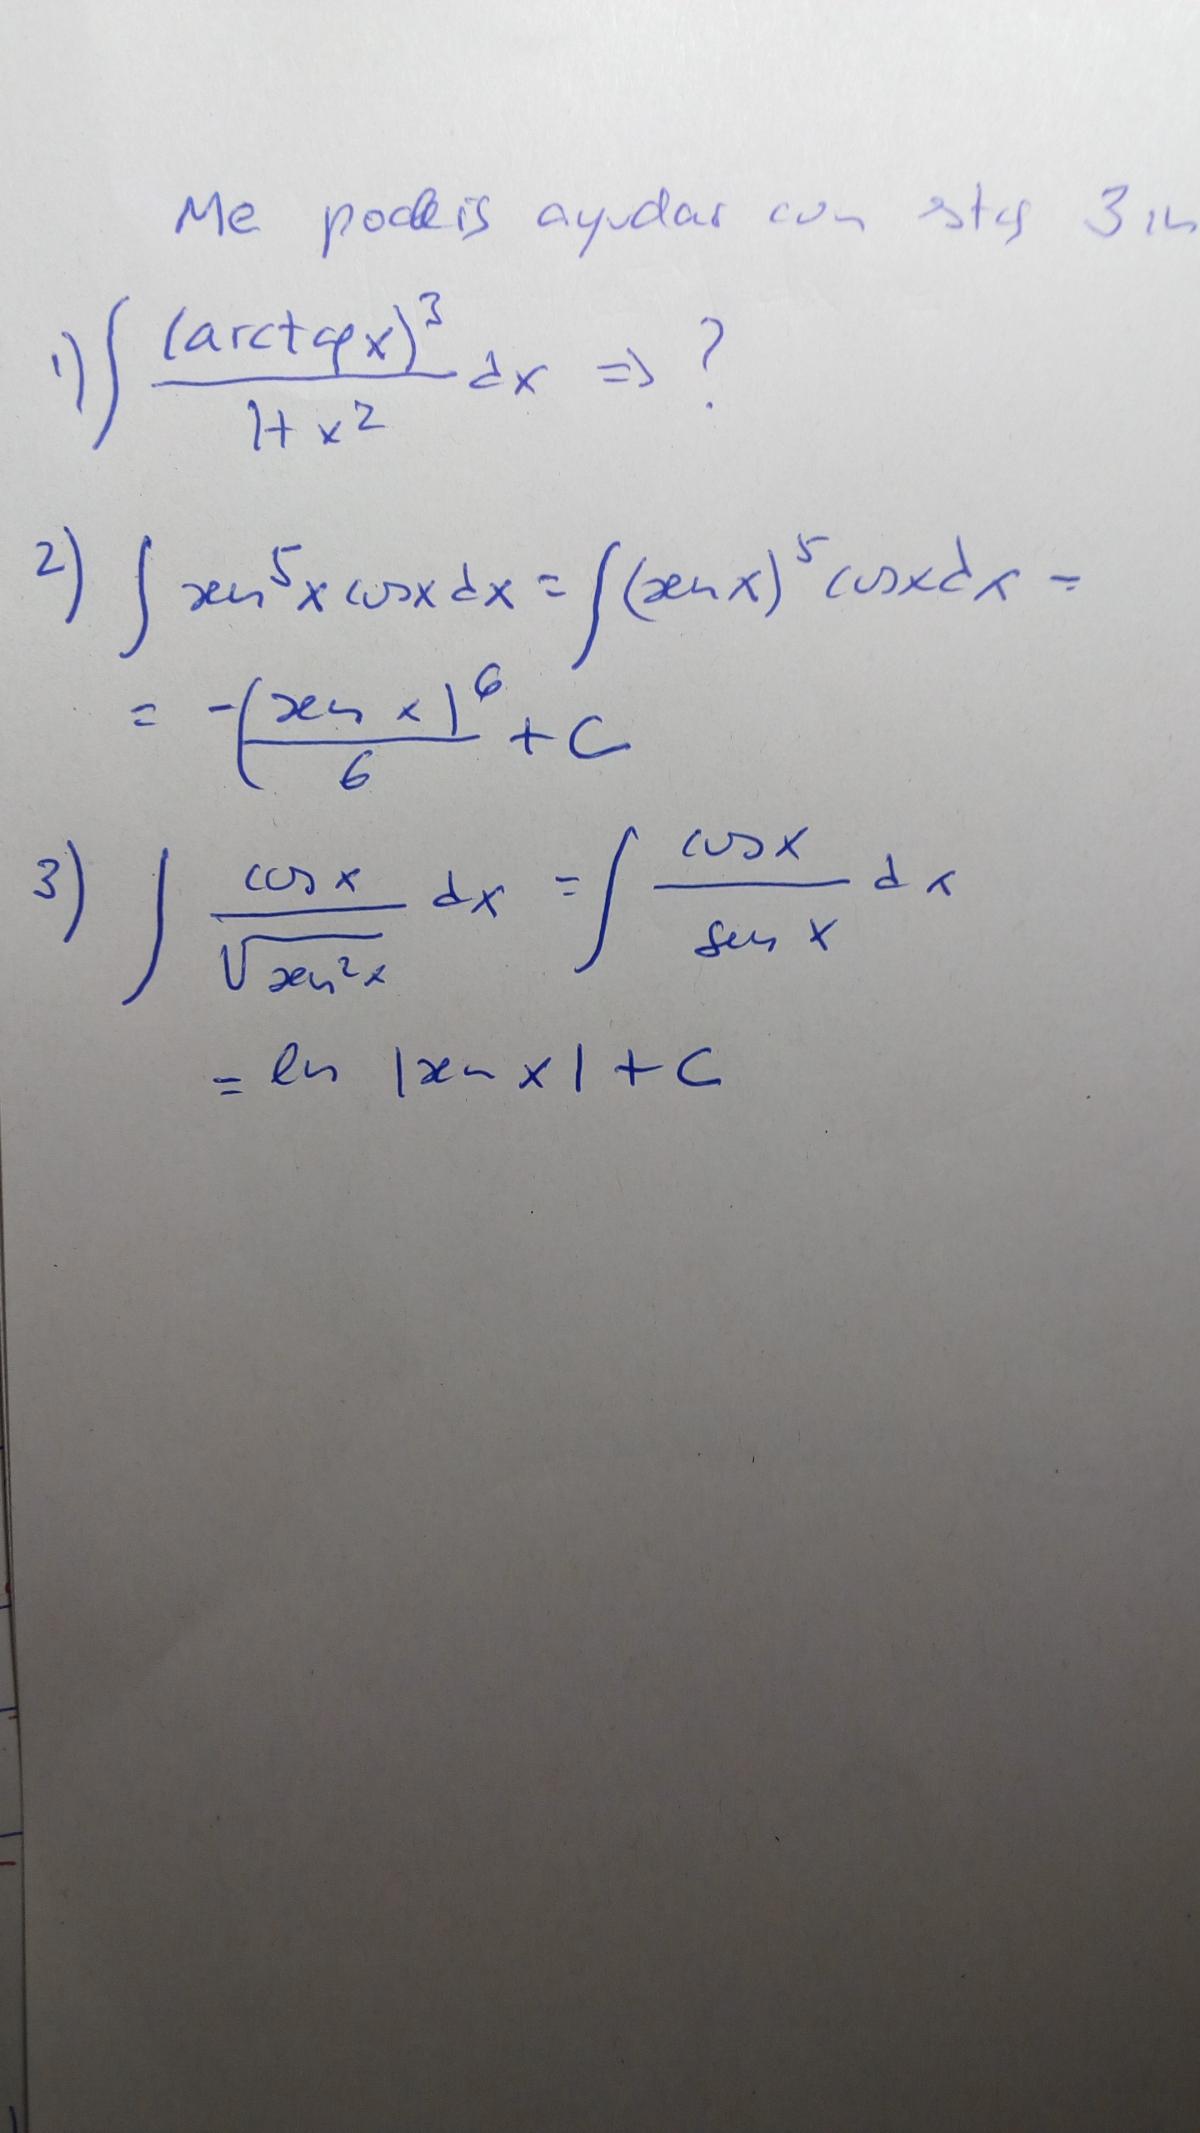 Me podeis ayudar con estas 3 in
1) ∫ (arctg x)³ / (1+x²) dx => ?
2) ∫ sen⁵x cosx dx = ∫ (sen x)⁵ cosx dx =
= -(sen x)⁶ / 6 + C
3) ∫ cos x / √sen²x dx = ∫ cos x / sen x dx
= ln |sen x| + C